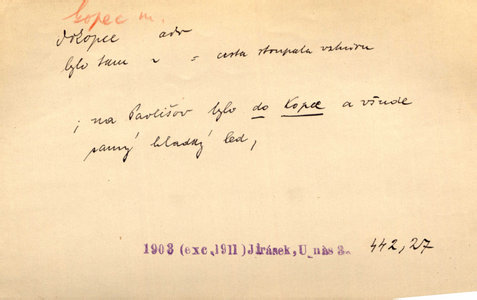 kopec m.
dokopce adv
bylo tam ~ = cesta stoupala vzhůru
; na Pavlišov bylo do kopce a všude
samý hladký led,
1903 (exc. 1911) Jirásek, U nás 3. 442,27